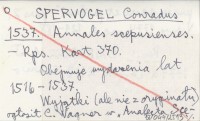 SPERVOGEL Conradus
1537. Annales scepusienses.
- Rps. Kart 370.
Obejmuje wydarzenia lat
1516-1537.
Wyjątki (ale nie z oryginału)
ogłosił C. Wagner w „Analecta Sce-